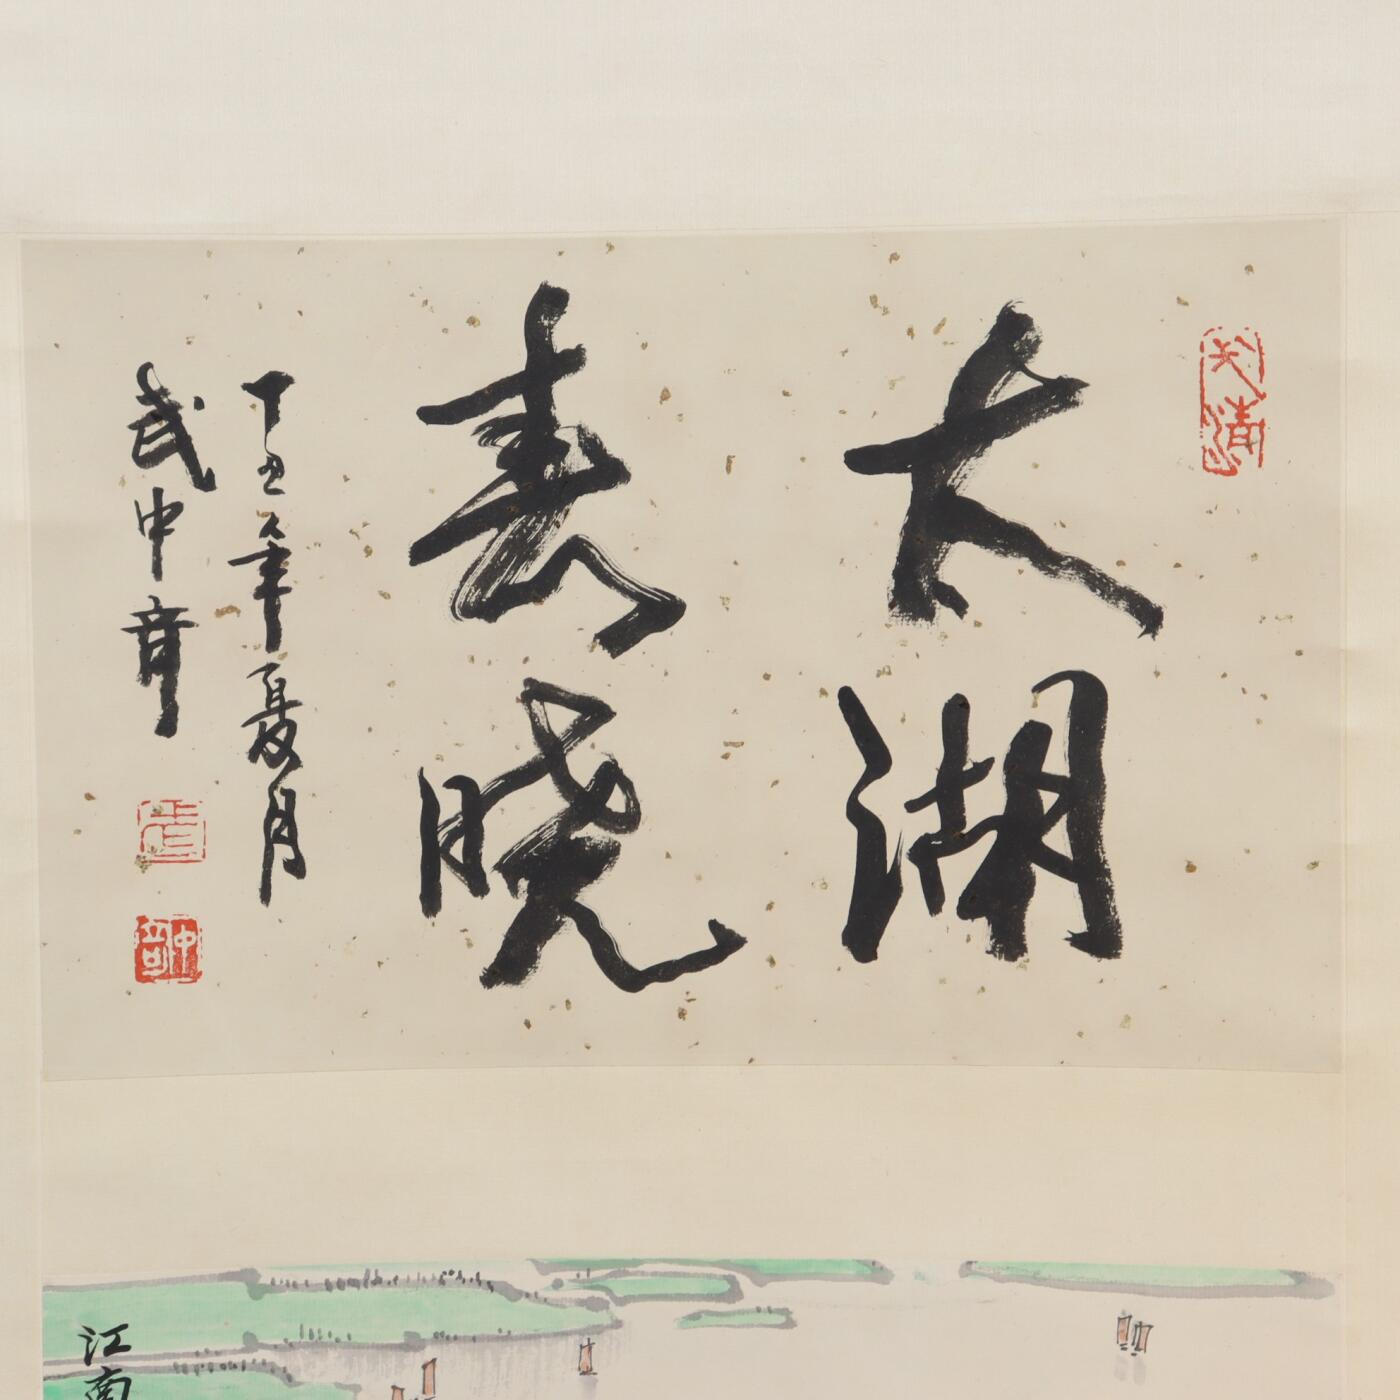 太湖
春晓
丁丑年夏月
武中奇
江南